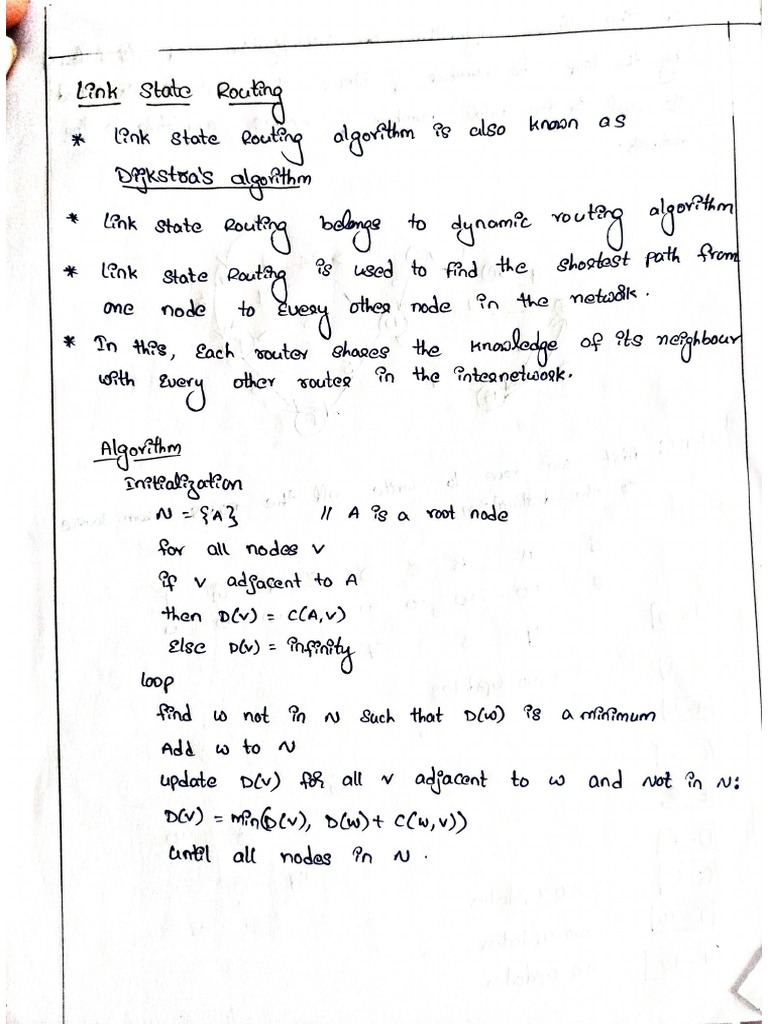 Link State Routing
* Link State Routing algorithm is also known as
Dijkstra's algorithm
* Link State Routing belongs to dynamic routing algorithm
* Link State Routing is used to find the shortest path from
one node to Every other node in the network.
* In this, Each router shares the knowledge of its neighbour
with Every other router in the internetwork.
Algorithm
Initialization
N = {A} // A is a root node
for all nodes v
if v adjacent to A
then D(v) = C(A,v)
Else D(v) = infinity
loop
find w not in N such that D(w) is a minimum
Add w to N
update D(v) for all v adjacent to w and Not in N:
D(v) = min(D(v), D(w) + C(w,v))
until all nodes in N.